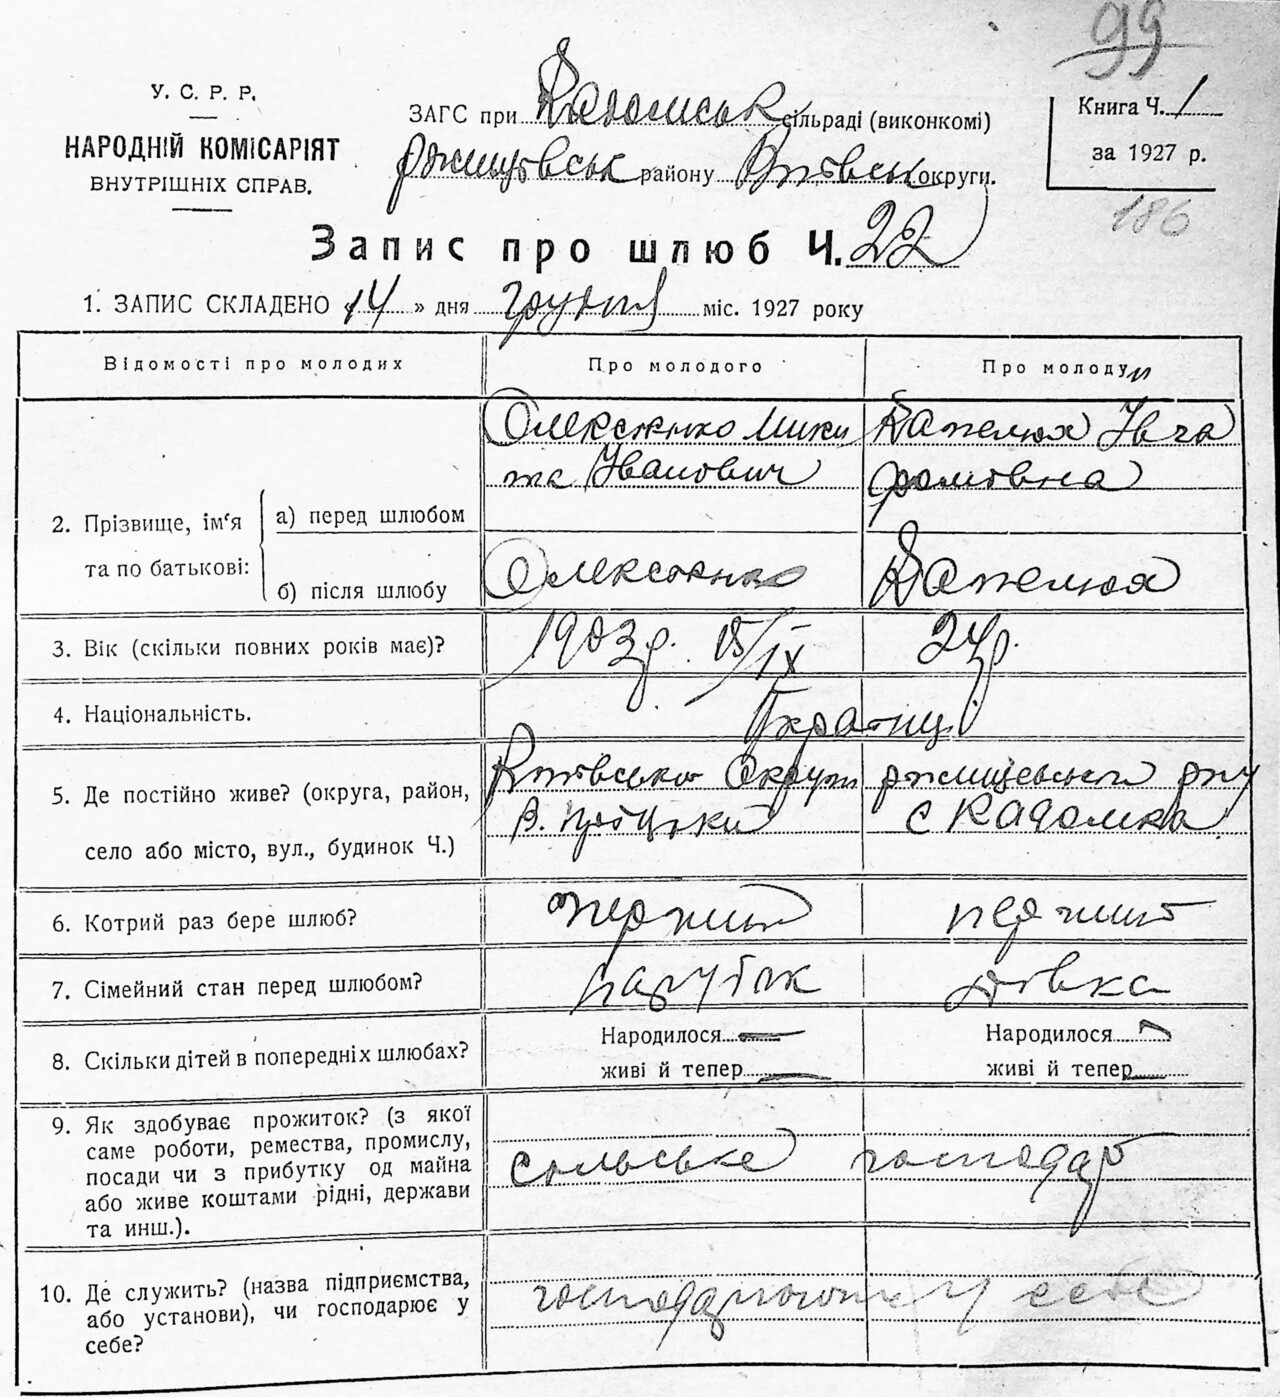 99
У. С. Р. Р.
НАРОДНІЙ КОМІСАРІЯТ
ВНУТРІШНІХ СПРАВ.
ЗАГС при Кадомськ сільраді (виконкомі)
Ржищівськ району Київськ округи.
Книга Ч. 1
за 1927 р.
186
Запис про шлюб Ч. 22
1. ЗАПИС СКЛАДЕНО «14» дня грудня міс. 1927 року
Відомості про молодих Про молодого Про молоду
2. Прізвище, ім'я та по батькові:
а) перед шлюбом
Олексієнко Мики
та Іванович
Капелюх Івга
б) після шлюбу
Олексієнко
Капелюх
3. Вік (скільки повних років має)? 1903р. 15/IX 24р.
4. Національність. Українці
5. Де постійно живе? (округа, район, село або місто, вул., будинок Ч.)
Київської Округи Ржищівського р-ну
с Кадомка
6. Котрий раз бере шлюб? перший перший
7. Сімейний стан перед шлюбом? парубок дівка
8. Скільки дітей в попередніх шлюбах?
Народилося — Народилося
живі й тепер — живі й тепер —
9. Як здобуває прожиток? (з якої
саме роботи, ремества, промислу,
посади чи з прибутку од майна
або живе коштами рідні, держави
та инш.).
сільське господар
10. Де служить? (назва підприємства,
або установи), чи господарює у
себе?
у себе